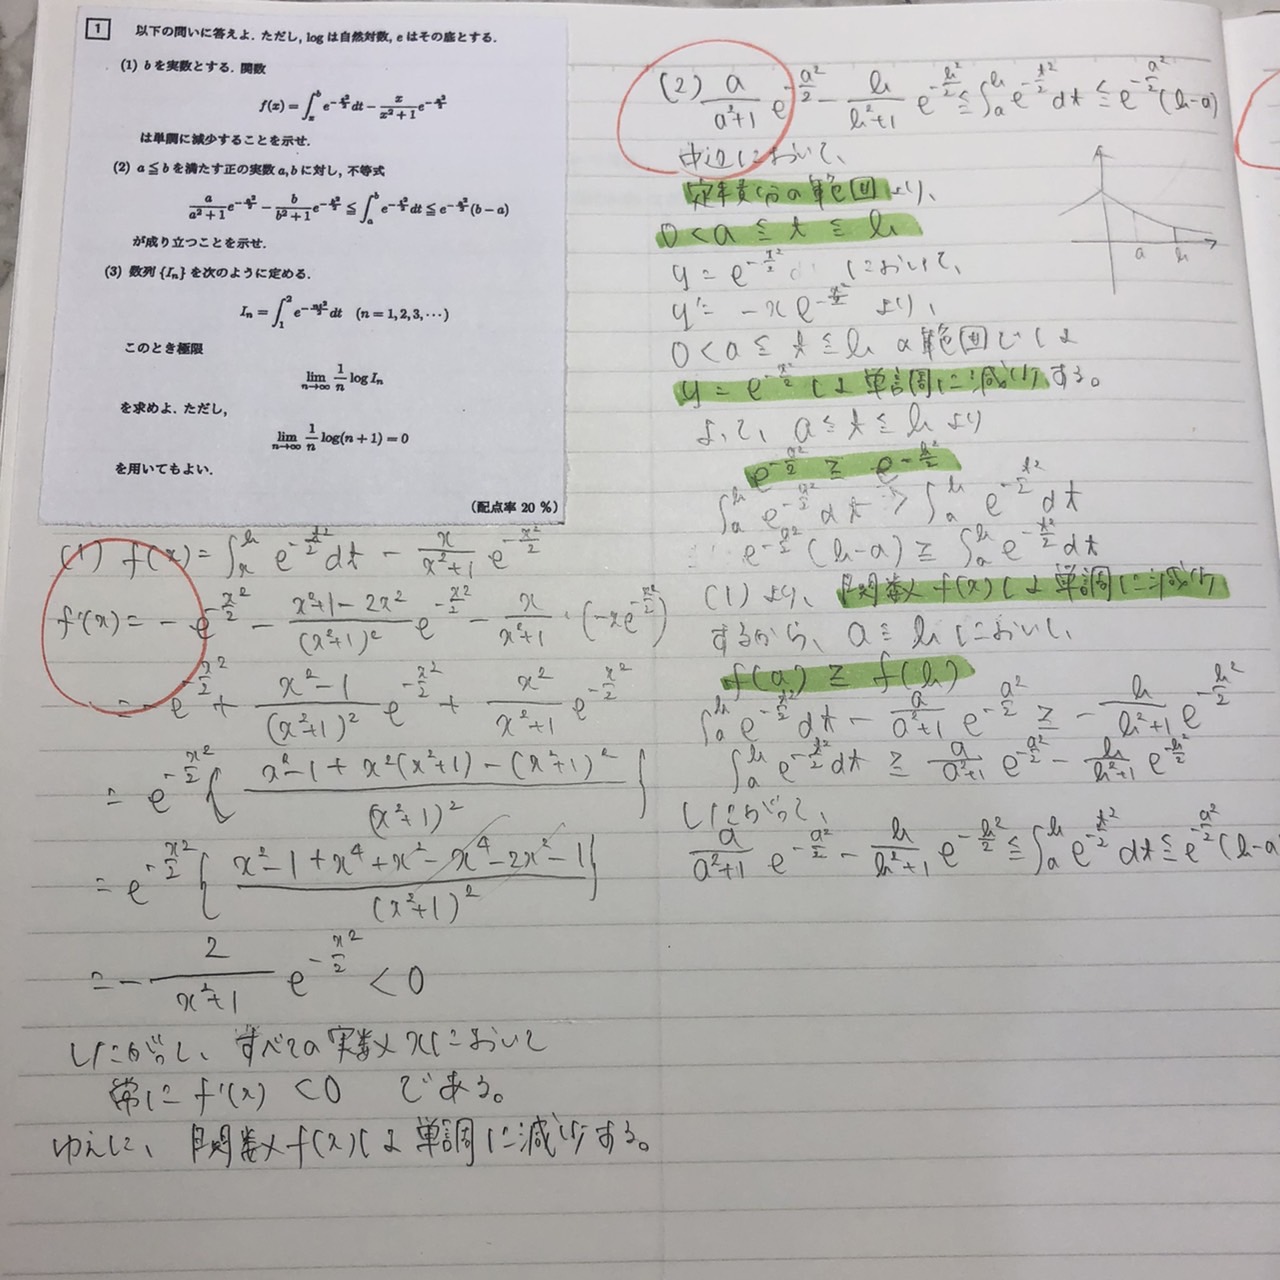 1 以下の問いに答えよ. ただし, logは自然対数, eはその底とする.
(1) bを実数とする. 関数
f(x) = ∫_x^b e^{-t²/2} dt − x/(x²+1) e^{-x²/2}
は単調に減少することを示せ.
(2) a≦bを満たす正の実数a, bに対し, 不等式
a/(a²+1) e^{-a²/2} − b/(b²+1) e^{-b²/2} ≦ ∫_a^b e^{-t²/2} dt ≦ e^{-a²/2}(b−a)
が成り立つことを示せ.
(3) 数列{I_n}を次のように定める.
I_n = ∫_1^2 e^{-nt²/2} dt (n = 1, 2, 3, ⋯)
このとき極限
lim_{n→∞} 1/n log I_n
を求めよ. ただし,
lim_{n→∞} 1/n log(n+1) = 0
を用いてもよい.
(配点率 20 %)
(1) f(x) = ∫_x^b e^{-t²/2} dt − x/(x²+1) e^{-x²/2}
f'(x) = − e^{-x²/2} − (x²+1−2x²)/(x²+1)² e^{-x²/2} − x/(x²+1) · (−xe^{-x²/2})
= − e^{-x²/2} + (x²−1)/(x²+1)² e^{-x²/2} + x²/(x²+1) e^{-x²/2}
= e^{-x²/2} { (x²−1+x²(x²+1)−(x²+1)²)/(x²+1)² }
= e^{-x²/2} { (x²−1+x⁴+x²−x⁴−2x²−1)/(x²+1)² }
= − 2/(x²+1) e^{-x²/2} < 0
したがって、すべての実数xにおいて
常に f'(x) < 0 である。
ゆえに、関数f(x)は単調に減少する。
(2) a/(a²+1) e^{-a²/2} − b/(b²+1) e^{-b²/2} ≦ ∫_a^b e^{-t²/2} dt ≦ e^{-a²/2}(b−a)
中辺において、
定積分の範囲より、
0 < a ≦ t ≦ b
y = e^{-x²/2} において、
y' = −x e^{-x²/2} より、
0 < a ≦ t ≦ b の範囲では
y = e^{-x²/2} は単調に減少する。
よって、a ≦ t ≦ b より
e^{-a²/2} ≧ e^{-b²/2}
∫_a^b e^{-a²/2} dt ≧ ∫_a^b e^{-t²/2} dt
e^{-a²/2}(b−a) ≧ ∫_a^b e^{-t²/2} dt
(1)より、関数f(x)は単調に減少
するから、a ≦ b において、
f(a) ≧ f(b)
∫_a^b e^{-t²/2} dt − a/(a²+1) e^{-a²/2} ≧ − b/(b²+1) e^{-b²/2}
∫_a^b e^{-t²/2} dt ≧ a/(a²+1) e^{-a²/2} − b/(b²+1) e^{-b²/2}
したがって、
a/(a²+1) e^{-a²/2} − b/(b²+1) e^{-b²/2} ≦ ∫_a^b e^{-t²/2} dt ≦ e^{-a²/2}(b−a
a b